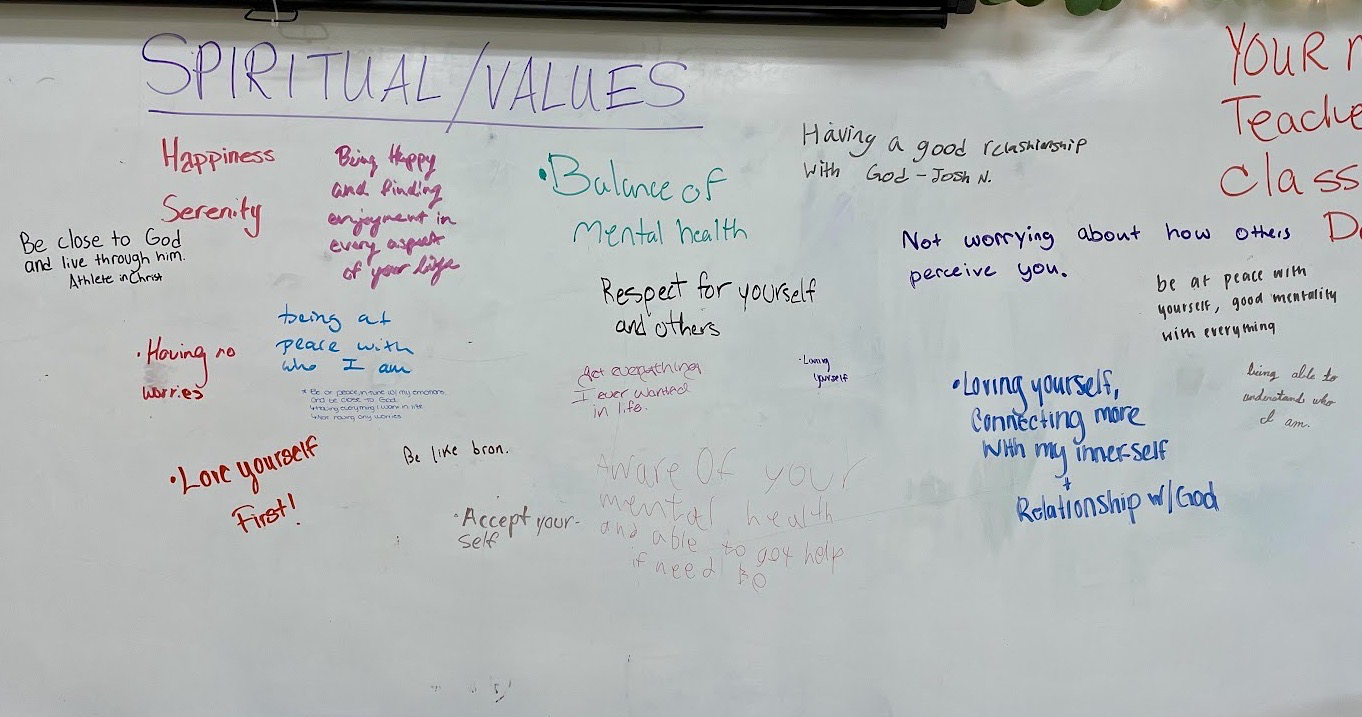 SPIRITUAL/VALUES
Happiness
Serenity
Being Happy
and finding
enjoyment in
every aspect
of your life
Be close to God
and live through him.
Athlete in Christ
• Balance of
Mental health
Having a good relashionship
with God - Josh N.
YOUR
Teache
Class
Not worrying about how others
perceive you.
Respect for yourself
and others
be at peace with
yourself, good mentality
with everything
• Having no
worries
being at
peace with
who I am
* Be at peace, in-tune w/ my emotions,
and be close to God.
↳ Having everything I want in life
↳ Not having any worries
Get everything
I ever wanted
in life.
• Loving
yourself
• Loving yourself,
Connecting more
With my inner-self
+
Relationship w/God
being able to
understand who
I am.
• Love yourself
First!
Be like bron.
• Accept your-
self
Aware Of your
mental health
and able to get help
if need Be